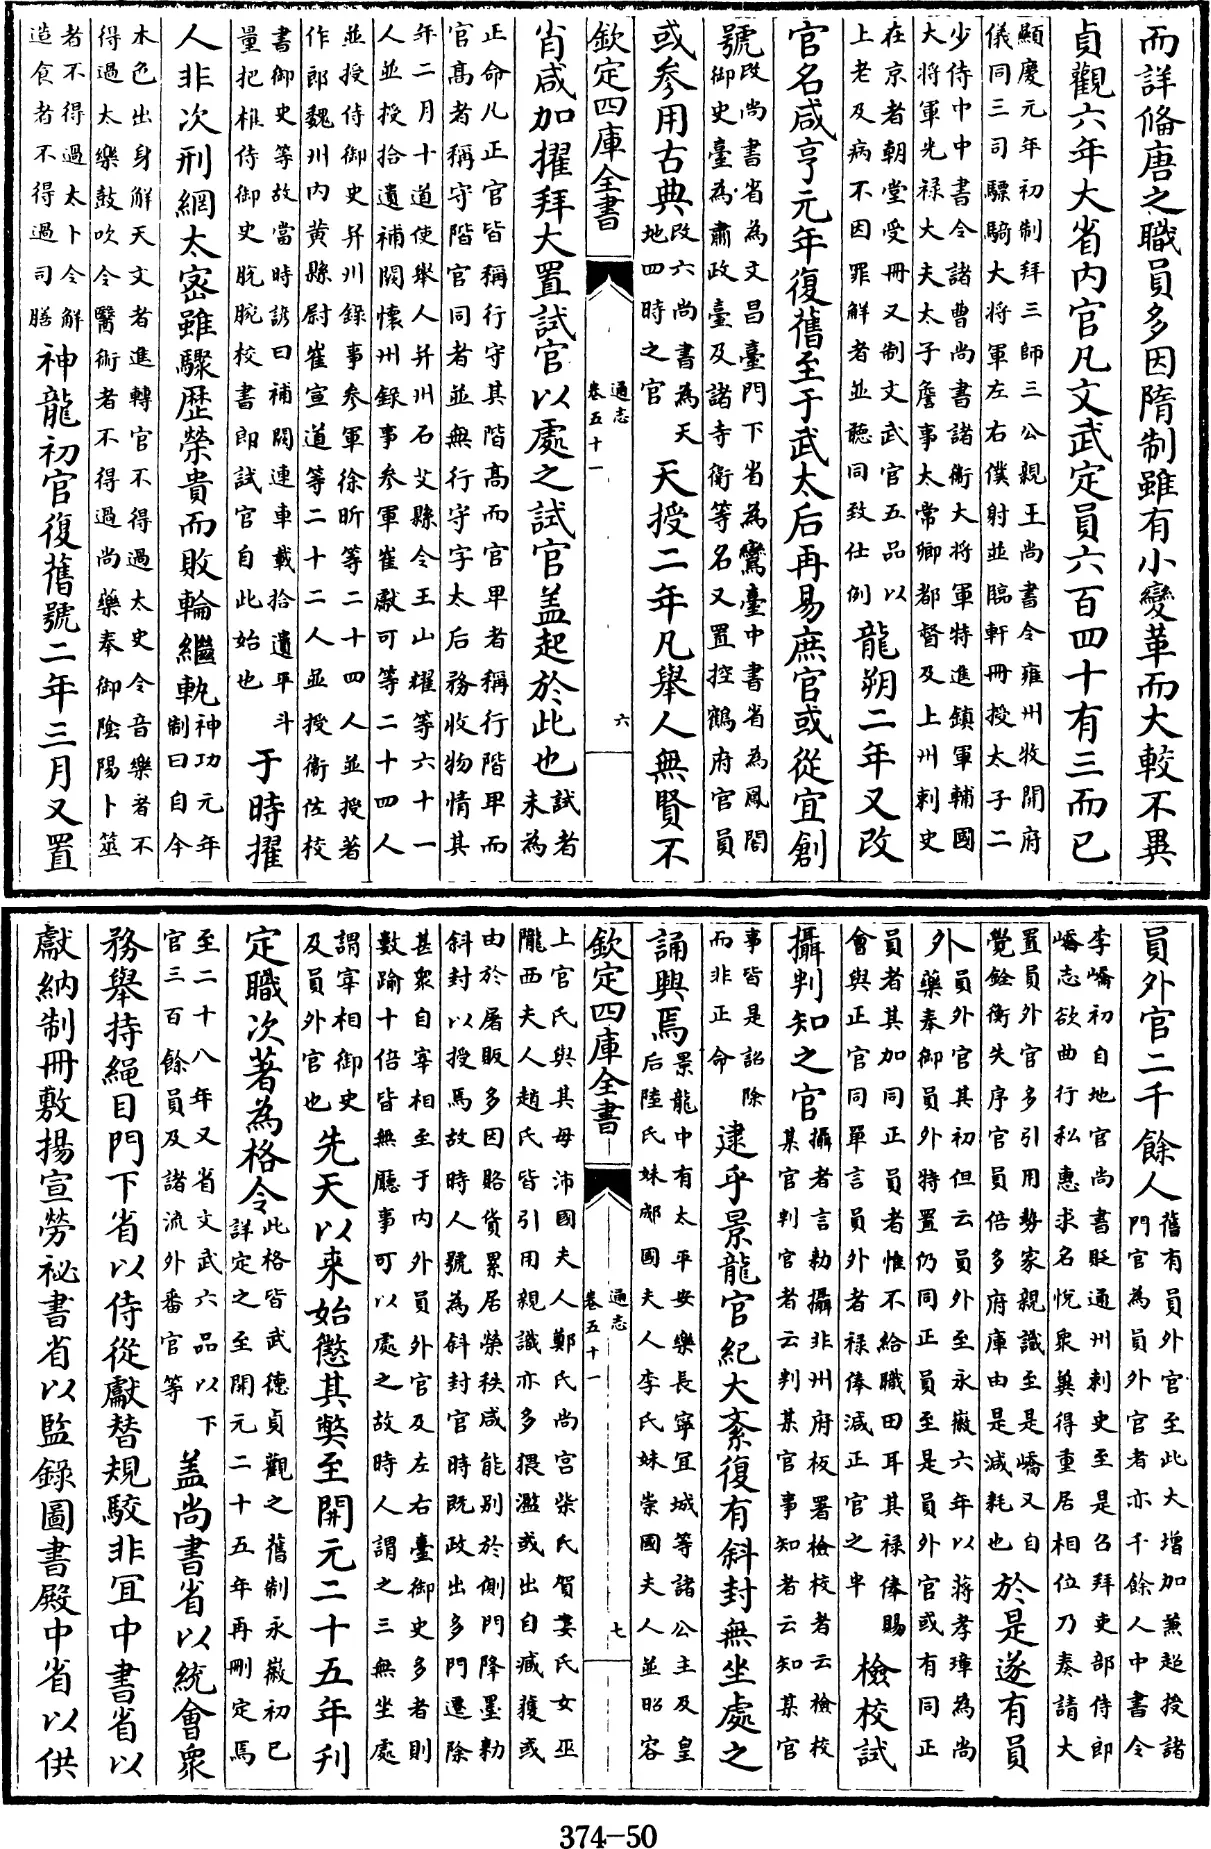 而詳俻唐之職員多因隋制雖有小變革而大較不異
貞觀六年大省内官凡文武定員六百四十有三而已
顯慶元年初制拜三師三公親王尚書令雍州牧開府
儀同三司驃騎大将軍左右僕射並臨軒冊授太子二
少侍中中書令諸曹尚書諸衛大将軍特進鎮軍輔國
大将軍光禄大夫太子詹事太常卿都督及上州刺史
在京者朝堂受冊又制文武官五品以
上老及病不因罪解者並聽同致仕例
龍朔二年又改
官名咸亨元年復舊至于武太后再易庶官或從宜創
號
改尚書省為文昌臺門下省為鸞臺中書省為鳳閣
御史臺為肅政臺及諸寺衛等名又置控鶴府官員
或參用古典
改六尚書為天
地四時之官
天授二年凡舉人無賢不
欽定四庫全書
通志
卷五十一
六
肖咸加擢拜大置試官以處之試官盖起於此也
試者
未為
正命凡正官皆稱行守其階髙而官卑者稱行階卑而
官髙者稱守階官同者並無行守字太后務收物情其
年二月十道使舉人并州石艾縣令王山耀等六十一
人並授拾遺補闕懷州録事参軍崔獻可等二十四人
並授侍御史并州錄事参軍徐昕等二十四人並授著
作郎魏州内黄縣尉崔宣道等二十二人並授衛佐校
書御史等故當時諺曰補闕連車載拾遺平斗
量把椎侍御史脘脫校書郎試官自此始也
于時擢
人非次刑網太密雖驟歴榮貴而敗輪繼軌
神功元年
制曰自今
本色出身解天文者進轉官不得過太史令音樂者不
得過太樂鼓吹令醫術者不得過尚藥奉御陰陽卜筮
者不得過太卜令解
造食者不得過司膳
神龍初官復舊號二年三月又置
員外官二千餘人
舊有員外官至此大增加兼超授諸
門官為員外官者亦千餘人中書令
李嶠初自地官尚書貶通州刺史至是召拜吏部侍郎
嶠志欲曲行私惠求名悦衆冀得重居相位乃奏請大
置員外官多引用勢家親識至是嶠又自
覺銓衡失序官員倍多府庫由是減耗也
於是遂有員
外
員外官其初但云員外至永徽六年以蔣孝璋為尚
藥奉御員外特置仍同正員至是員外官或有同正
員者其加同正員者惟不給職田耳其禄俸賜
會與正官同單言員外者禄俸減正官之半
檢校試
攝判知之官
攝者言勅攝非州府板署檢校者云檢校
某官判官者云判某官事知者云知某官
事皆是詔除
而非正命
逮乎景龍官紀大紊復有斜封無坐處之
誦興焉
景龍中有太平安樂長寧宜城等諸公主及皇
后陸氏妹郕國夫人李氏妹崇國夫人並昭容
欽定四庫全書
通志
卷五十一
七
上官氏與其母沛國夫人鄭氏尚宮柴氏賀婁氏女巫
隴西夫人趙氏皆引用親識亦多猥濫或出自臧獲或
由於屠販多因賂貨累居榮秩咸能别於側門降墨勅
斜封以授焉故時人號為斜封官時既政出多門遷除
甚衆自宰相至于内外員外官及左右臺御史多者則
數踰十倍皆無廳事可以處之故時人謂之三無坐處
謂宰相御史
及員外官也
先天以来始懲其獘至開元二十五年刋
定職次著為格令
此格皆武德貞觀之舊制永徽初已
詳定之至開元二十五年再刪定焉
至二十八年又省文武六品以下
官三百餘員及諸流外番官等
盖尚書省以統會衆
務舉持繩目門下省以侍從獻替規駮非宜中書省以
獻納制冊敷揚宣勞祕書省以監錄圖書殿中省以供
374-50